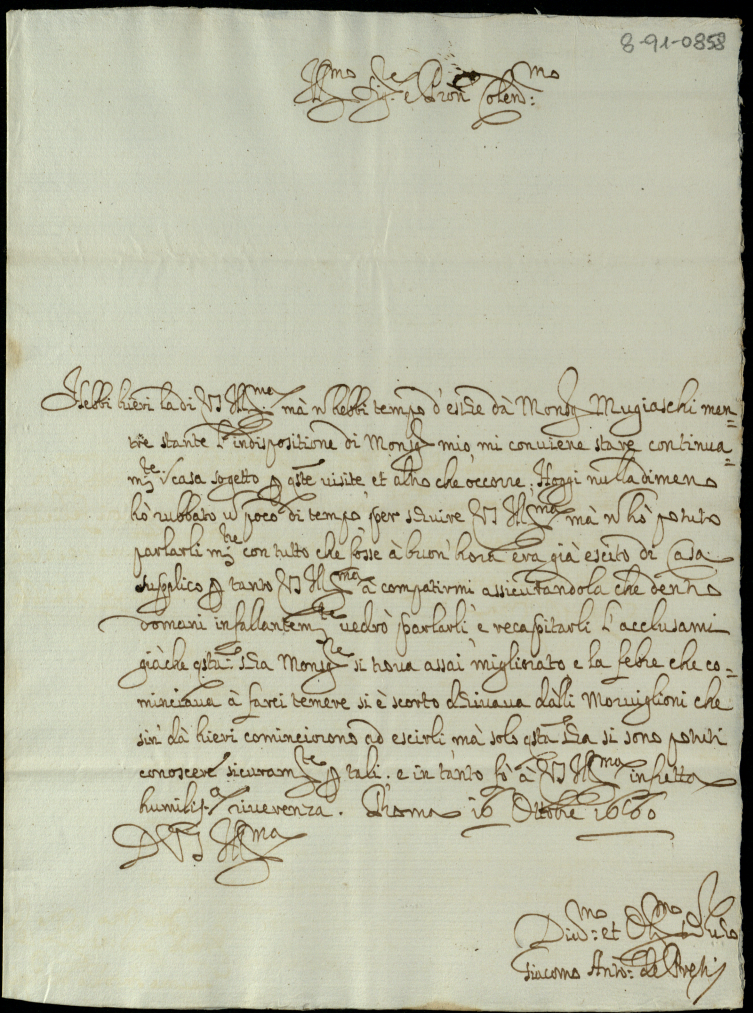 8-91-0858
Ill.mo Sig.re e Pron Colen.mo
Hebbi hieri la di VS Ill.ma mà n hebbi tempo d'essere dà Monsg Mugiaschi men=
tre stante l'indispositione di Monsg mio, mi conviene stare continua=
m.te casa sogetto p qste visite et altro che occorre. Hoggi nulladimeno
hò rubbato u poco di tempo per servire VS Ill.ma mà n hò potuto
parlarli m.te con tutto che fosse à buon'hora era già escito di Casa
supplico p tanto VS Ill.ma à compatirmi assicurandola che dentro
domani infallantem.te vedrò parlarli e recapitarli l'acclusami
giàche qsta sera Monsg.re si trova assai migliorato e la febre che co=
minciava à farci temere si è scorto derivava dalli Morviglioni che
sin dà hieri cominciorono ad escirli mà solo qsta sera si sono potuti
conoscere sicuram.te p tali. e in tanto fò à VS Ill.ma infretta
humiliss.a riverenza. Rhoma 16 Ottobre 1660
D VS Ill.ma
Div.mo et Obl.mo Ser.re
Giacomo Ant.o de